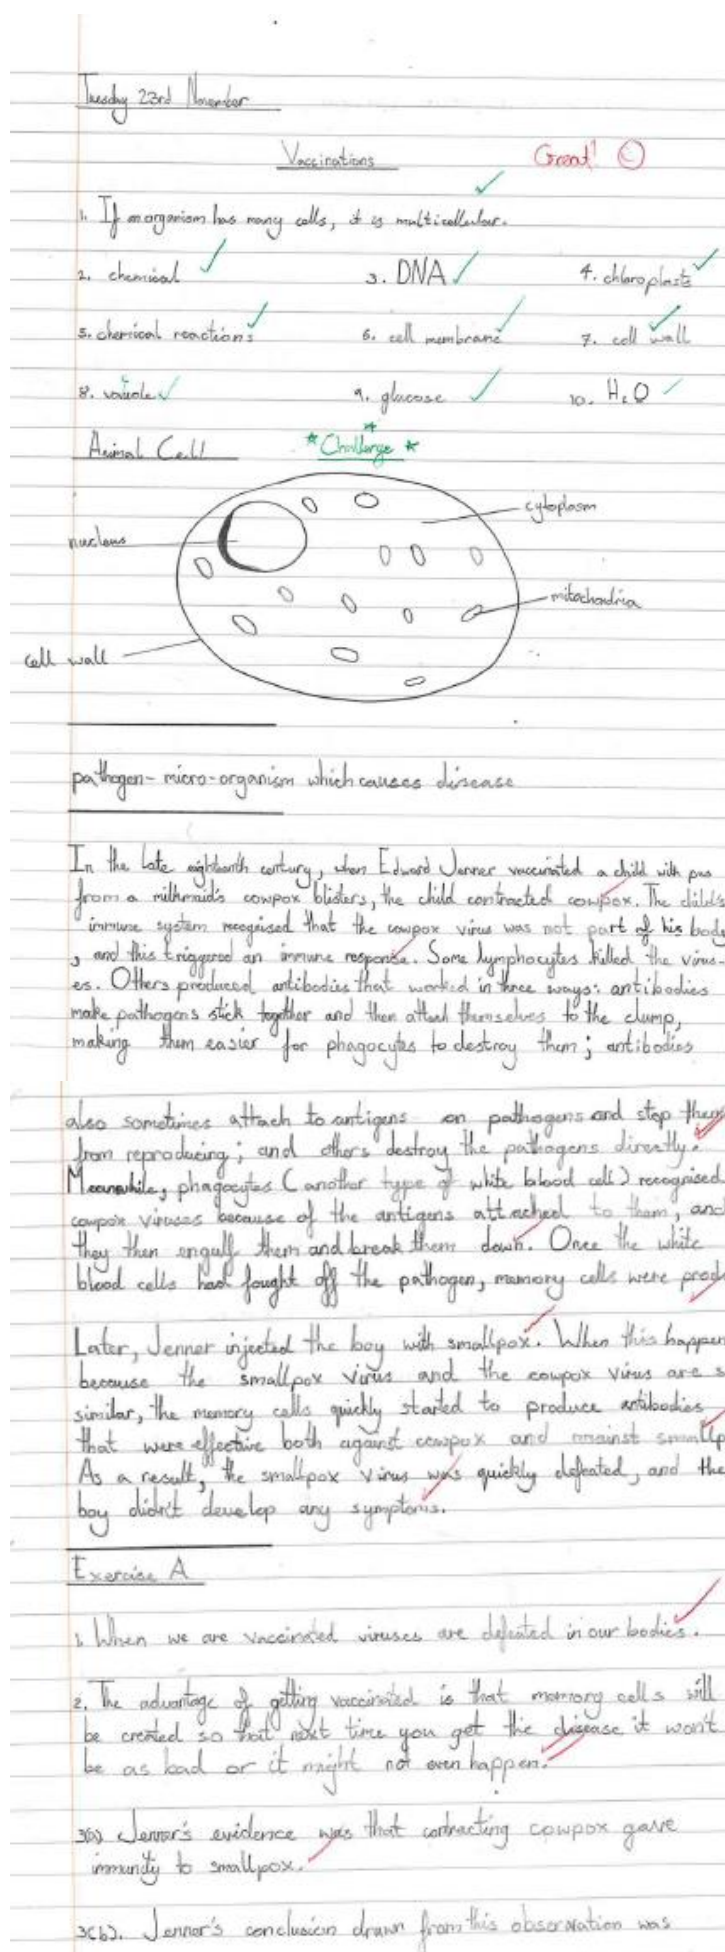 Tuesday 23rd November
Vaccinations Great!
1. If an organism has many cells, it is multicellular.
2. chemical 3. DNA 4. chloroplasts
5. chemical reactions 6. cell membrane 7. cell wall
8. vacuole 9. glucose 10. H2O
Animal Cell *Challenge*
cytoplasm
nucleus
mitochondria
cell wall
pathogen - micro-organism which causes disease
In the late eighteenth century, when Edward Jenner vaccinated a child with pus
from a milkmaid's cowpox blisters, the child contracted cowpox. The child's
immune system recognised that the cowpox virus was not part of his body
, and this triggered an immune response. Some lymphocytes killed the virus-
es. Others produced antibodies that worked in three ways: antibodies
make pathogens stick together and then attach themselves to the clump,
making them easier for phagocytes to destroy them; antibodies
also sometimes attach to antigens on pathogens and stop them
from reproducing; and others destroy the pathogens directly.
Meanwhile, phagocytes (another type of white blood cell) recognised
cowpox viruses because of the antigens attached to them, and
they then engulf them and break them down. Once the white
blood cells had fought off the pathogen, memory cells were prod
Later, Jenner injected the boy with smallpox. When this happen
because the smallpox virus and the cowpox virus are s
similar, the memory cells quickly started to produce antibodies
that were effective both against cowpox and against smallp
As a result, the smallpox virus was quickly defeated, and the
boy didn't develop any symptoms.
Exercise A
1. When we are vaccinated viruses are defeated in our bodies.
2. The advantage of getting vaccinated is that memory cells will
be created so that next time you get the disease it won't
be as bad or it might not even happen.
3(a) Jenner's evidence was that contracting cowpox gave
immunity to smallpox.
3(b). Jenner's conclusion drawn from this observation was